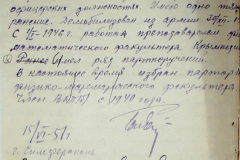 офицерских должностях. Имею одно тяж
ранение. Демобилизован из армии
С 1/I-1946 г. работаю преподавателем
математического факультета Крымпед
Имел ряд партпоручений.
В настоящее время избран парторгом
физико-математического факультета.
Член ВКП(б) с 1940 года.
15/VI-51 г.
г. Симферополь